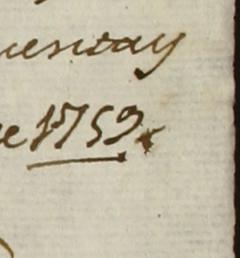 uesday
e 1759.